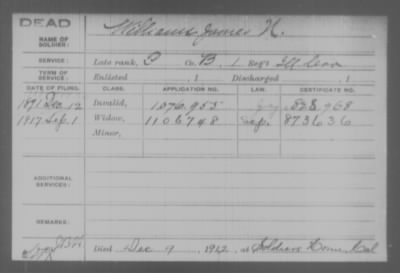 DEAD
NAME OF SOLDIER: Williams, James H.
SERVICE: Late rank, P Co. B, 1, Reg't Ill Cav
TERM OF SERVICE: Enlisted , 1 Discharged , 1
DATE OF FILING. CLASS. APPLICATION NO. LAW. CERTIFICATE NO.
1891 Dec 12 Invalid, 1076.955
1917 Sep. 1 Widow, 1106748 Sep. 873636
Minor,
ADDITIONAL SERVICES:
REMARKS:
Died Dec 9, 1912, at Soldiers Home, Cal